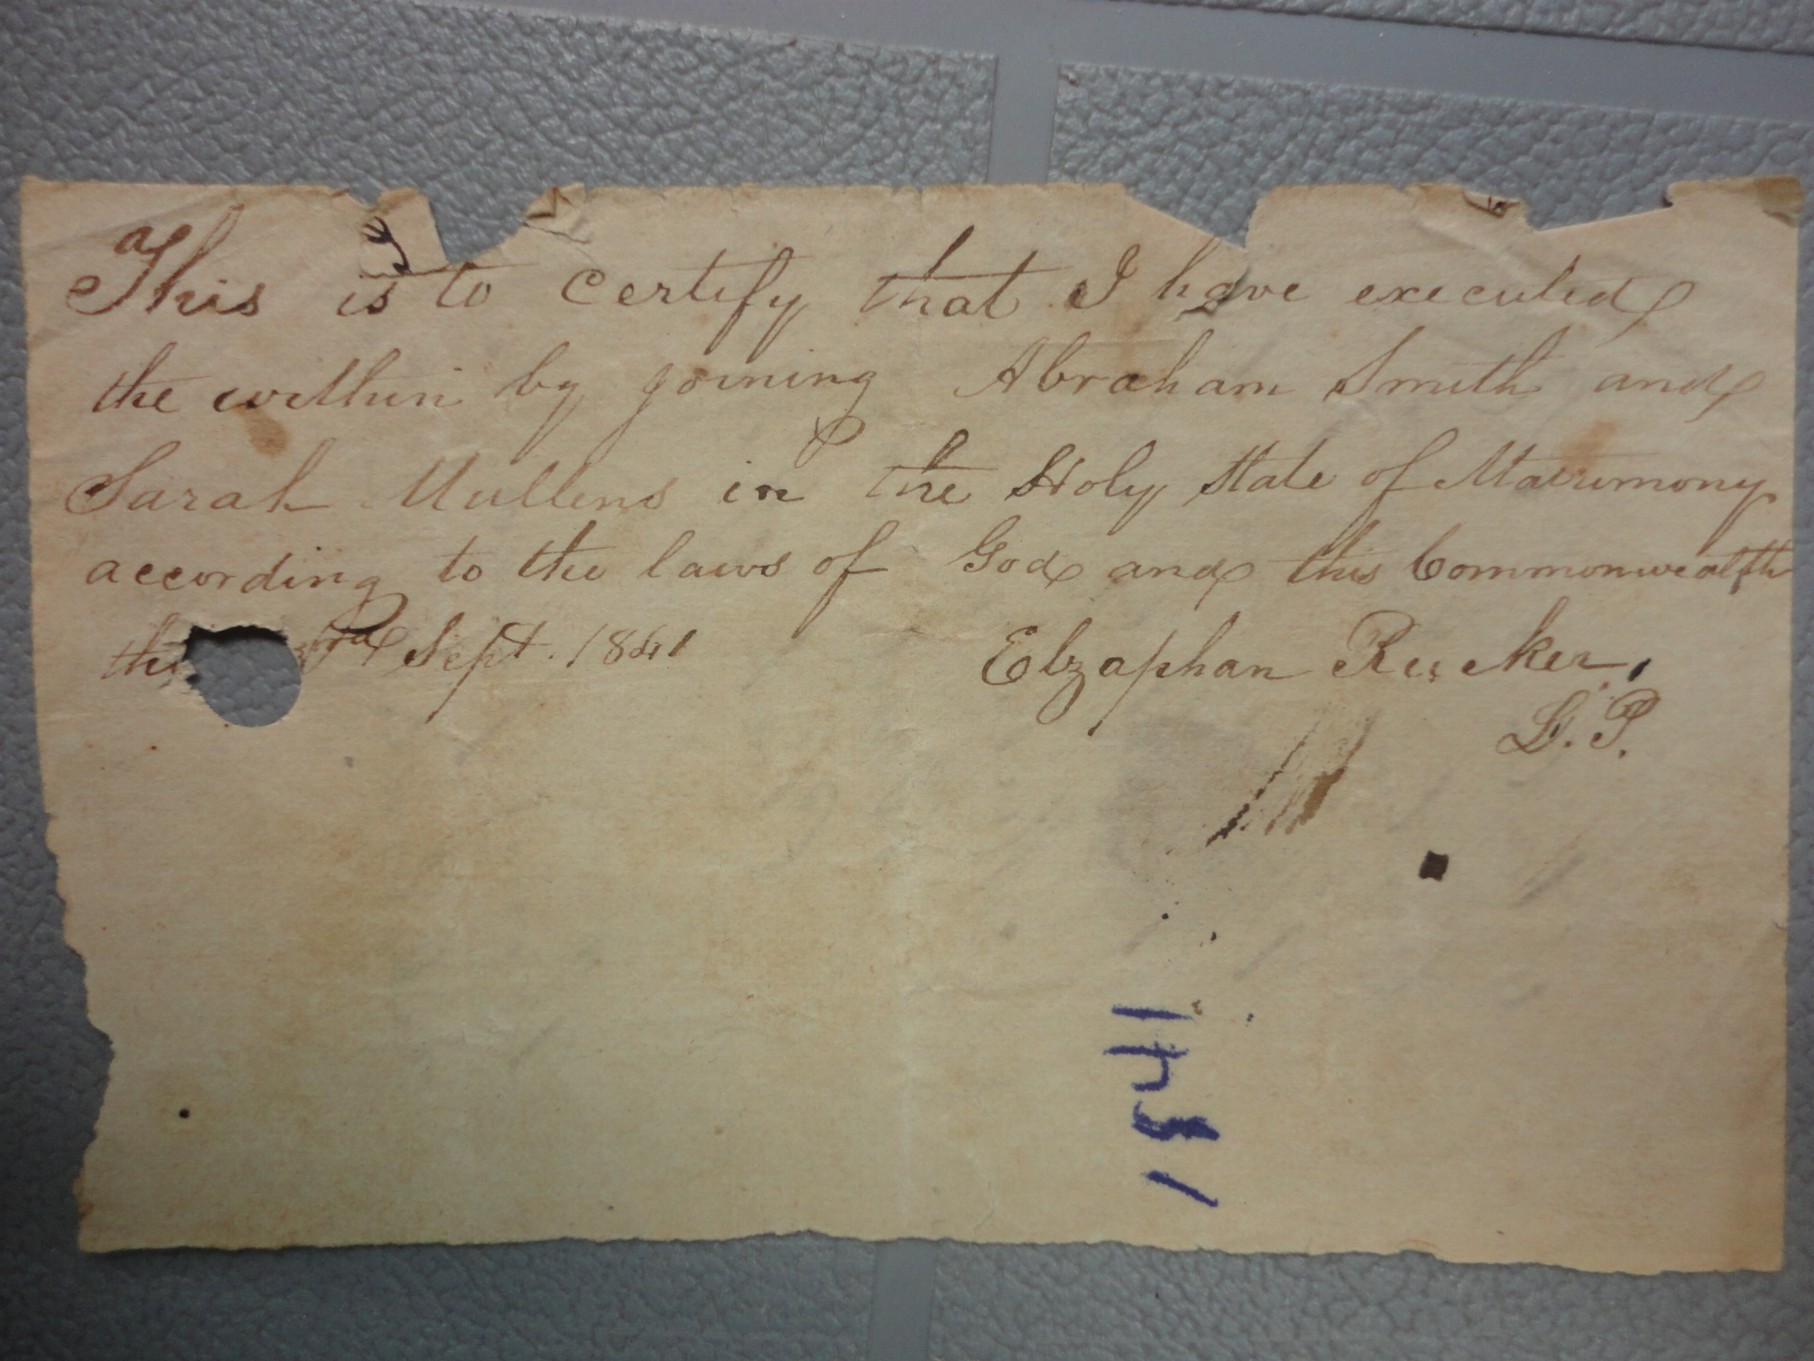 This is to certify that I have executed
the within by joining Abraham Smith and
Sarah Mullens in the Holy State of Matrimony
according to the laws of God and this Commonwealth
this rd Sept. 1841 Elzaphan Rucker,
L.P.
1841